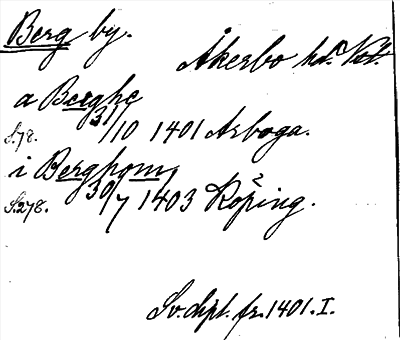 Berg by.
Åkerbo hd. Vstm.
a Berghe
S. 78. 31/10 1401 Arboga.
i Berghom,
S. 278. 30/7 1403 Köping.
Sv. dipl. fr. 1401. I.